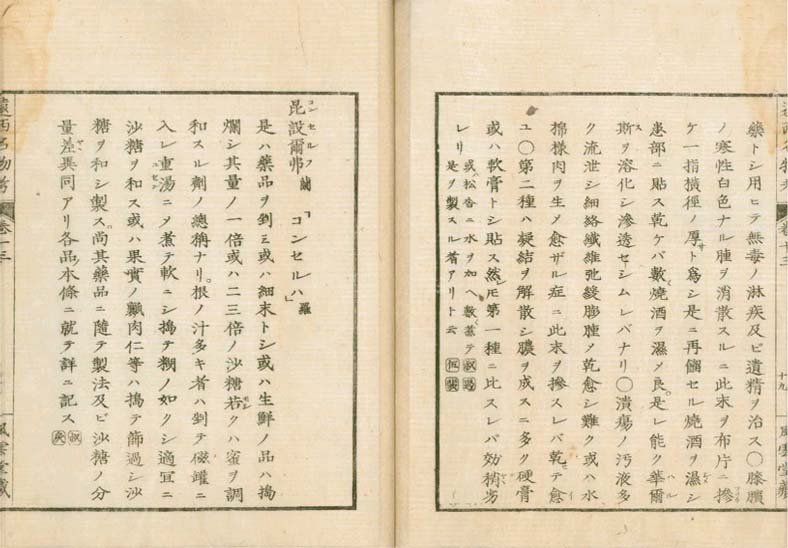 藥トシ用ヒテ無毒ノ淋疾及ビ遺精ヲ治ス〇膝臏
ノ寒性白色ナル腫ヲ消散スルニ此末ヲ布片ニ摻
ケ一指横徑ノ厚サト爲シ是ニ再餾セル焼酒ヲ濕シ
患部ニ貼ス乾ケバ數焼酒ヲ濕メ良是レ能ク華爾
斯ヲ溶化シ滲透セシムレバナリ〇潰瘍ノ汚液多
ク流泄シ細絡纖維弛緩膨腫メ乾愈シ難ク或ハ水
綿様肉ヲ生メ愈ザル症ニ此末ヲ摻スレバ乾テ愈
ユ〇第二種ハ凝結ヲ解散シ膿ヲ成スニ多ク硬膏
或ハ軟膏トシ貼ス然ㇾ𪜈第一種ニ比スレバ効稍劣
レリ
或松香ニ水ヲ加ヘ數煮テ
是ヲ製スル者アリト云
十九
風雲堂藏
遠西名物考
卷十三
昆設爾弗
コンセルフ
蘭
「コンセルハ」
羅
是ハ藥品ヲ剉ミ或ハ細末トシ或ハ生鮮ノ品ハ搗
爛シ其量ノ一倍或ハ二三倍ノ沙糖若クハ蜜ヲ調
和スル劑ノ總稱ナリ根ノ汁多キ者ハ剉テ磁罐ニ
入レ重湯ニメ煮テ軟ニシ搗テ糊ノ如クシ適宜ニ
沙糖ヲ和ス或ハ果實ノ瓤肉仁等ハ搗テ篩過シ沙
糖ヲ和シ製ス尚其藥品ニ隨テ製法及ビ沙糖ノ分
量差異同アリ各品本條ニ就テ詳ニ記ス
風雲堂藏